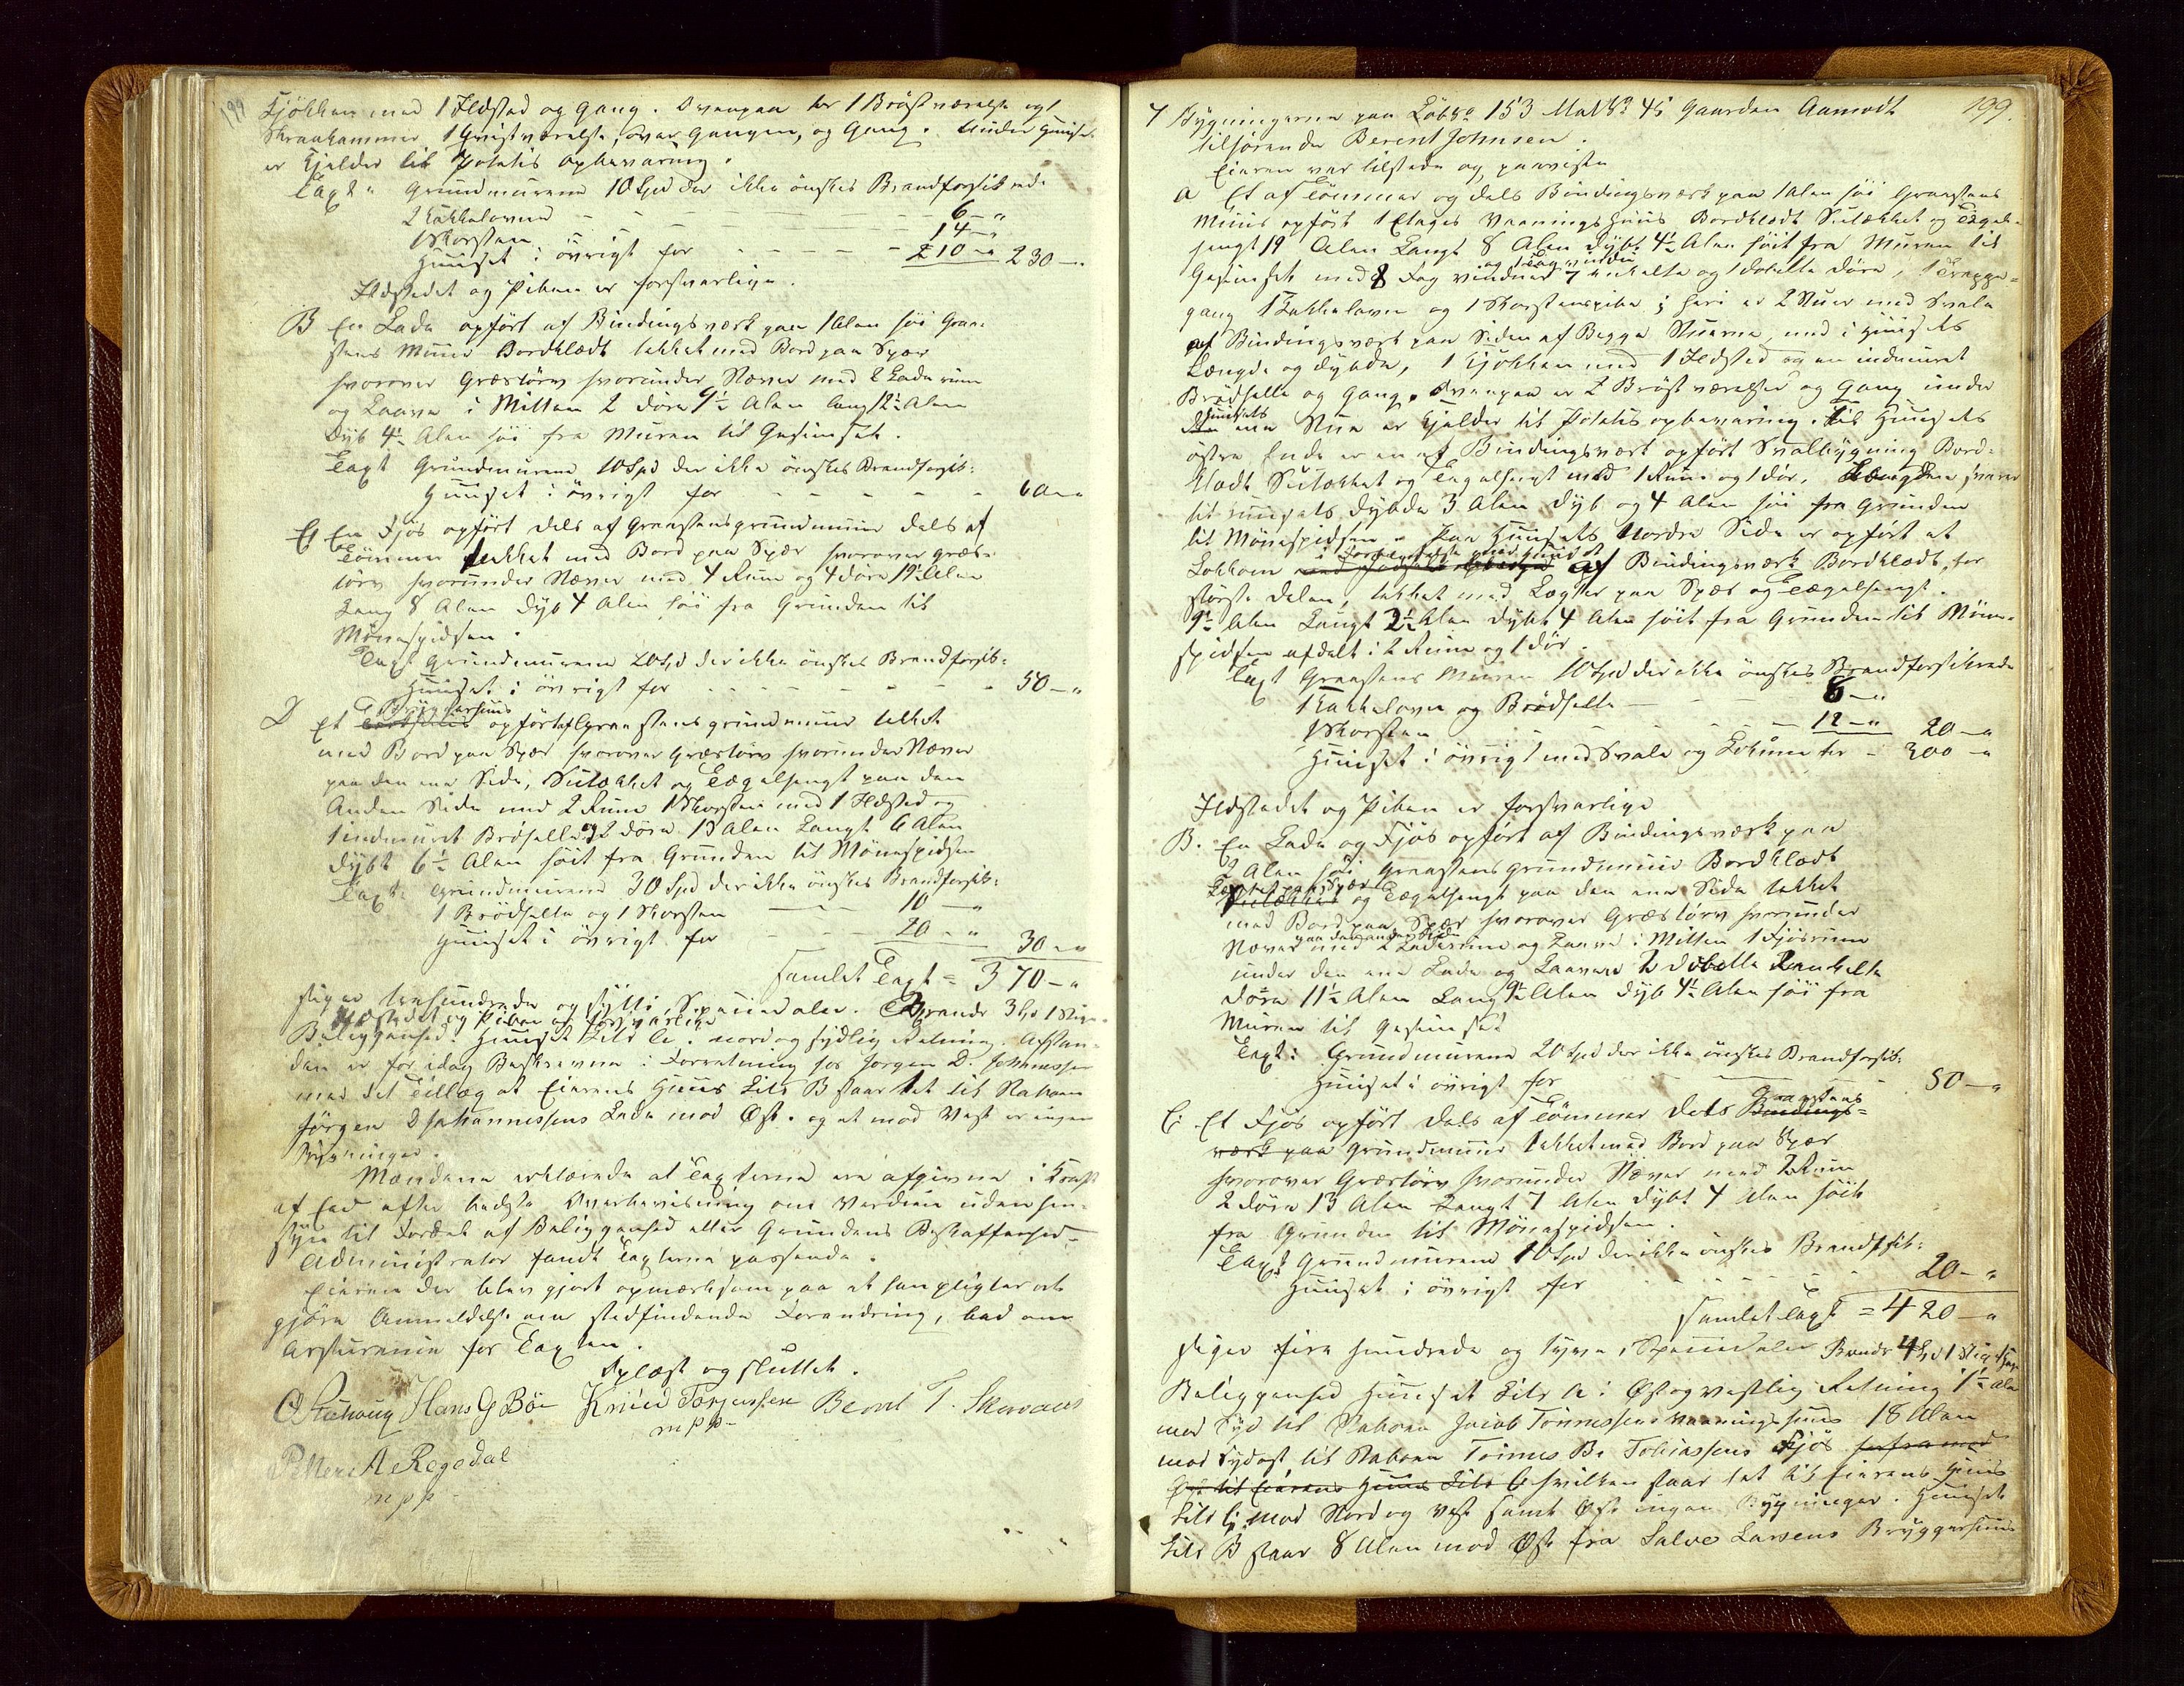 199
Kjökken med 1 Ildsted og Gang. Ovenpaa er 1 Bröstværelse og 1
Skraakammer 1 Qvistværelse, over Gangen, og Gang. Under Huuset
er Kjelder til Potetis opbevaring.
Taxt " Grundmurene 10 Spd der ikke önskes Brandforsikrede
2 Kakkelovne - - - 6 - "
1 Skorsten - - - 14 - "
Huuset i övrigt for - - - 210 - " 230 - "
Ildstedet og Piben er forsvarlige.
B En Lade opfört af Bindingsværk paa 1 Alen höi Graa-
stens Muur Bordklædt takket med Bord paa Spær
hvorover Græstörv hvorunder Næver med 2 Laderum
og Laave i Mitten 2 döre 9½ Alen lang 12½ Alen
Dyb 4½ Alen höi fra Muren til Gesimset.
Taxt Grundmurene 10 Spd der ikke önskes Brandforsik:
Huuset i övrigt for - - - 60 - "
C En Fjös opfört dels af Graastensgrundmuur dels af
Tömmer takket med Bord paa Spær hvorover Græs-
törv hvorunder Næver med 4 Rum og 4 döre 19½ Alen
Lang 8 Alen Dyb 4 Alen höi fra Grunden til
Mönespidsen.
Taxt Grundmurene 20 Spd der ikke önskes Brandforsik:
Huuset i övrigt for - - - 50 - "
Bryggerhuus
D Et opfört af Graastensgrundmuur takket
med Bord paa Spær hvorover Græstörv hvorunder Næver
paa den ene Side, Sutækket og Tægelhengt paa den
Anden Side med 2 Rum 1 Skorsten med 1 Ildsted og
1 indmuret Bröhelle og 2 döre 13 Alen Langt 6 Alen
dybt 6½ Alen höit fra Grunden til Mönespidsen
Taxt: Grundmurene 30 Spd der ikke önskes Brandforsik:
1 Brödhelle og 1 Skorsten - - 10 - "
Huuset i övrigt for - - 20 - " 30 - "
Samlet Taxt = 370 - "
siger trehundrede og sytti Speciedaler. Brandr 3 hd 1 Stige
Ildstedet og Piben er forsvarlige
Beliggenhed: Huuset Litr A. nord og sydlig Retning. Afstan-
den er för idag Beskrevne i Forretning hos Jørgen D. Johannessen
med det Tillæg at Eierens Huus Litr B staar tet til Naboen
Jörgen D Johannessens Lade mod Öst. og at mod Vest er ingen
Bygninger.
Mændene erklærede at Taxterne ere afgivne i Kraft
af Eed efter bedste Overbeviisning om Verdien uden hen-
syn til Fordel af Beliggenhed eller Grundens Beskaffenhed -
Administrator fandt Taxterne passende.
Eieren der blev gjort opmærksom paa at han pligter at
gjöre Anmeldelse om stedfindende Forandring, bad om
Assurence for Taxten.
Oplæst og sluttet.
Hans G Böe Knud Torjussen Bernt T. Skeraas
mpp
Petter A Regedal
mpp
199.
7 Bygningerne paa Löbno 153 Mat No 45 Gaarden Aamodt
tilhörende Berent Johnsen.
Eieren var tilstede og paaviste
A Et af Tömmer og dels Bindingsværk paa 1 Alen höi Graastens
Muur opfört 1 Etages Vaaningshuus Bordklædt Sutækket og Tægel-
hengt 19 Alen Langt 8 Alen dybt 4½ Alen höit fra Muren til
og 1 Tagvindu
Gesimset med 8 Fag vinduer 7 enkelte og 1 dobelte döre, 1 Trappe-
gang 1 Kakkelovn og 1 Skorstenspibe; heri er 2 Stuer med Svale
af Bindingsværk paa Siden af Begge Stuerne, med i Huusets
Længde og dybde, 1 Kjökken med 1 Ildsted og en indmuret
Brödhelle og Gang. Ovenpaa er 2 Bröstværelser og Gang under
Huusets
ene Stue er Kjelder til Potetis opbevaring. til Huusets
östre Ende er en af Bindingsværk opfört Svalbygning Bord-
klædt Sutækket og Tægelhengt med 1 Rum og 1 dör. Længden svarer
til Huusets dybde 3 Alen Dyb og 4 Alen höi fra Grunden
til Mönespidsen - Paa Huusets Nordre Side er opfört et
i Forbindelse med Huuset
Lokkom af Bindingsværk Bordklædt, for
störste delen, takket med Lægter paa Spær og Tægelhengt.
9½ Alen Langt 2½ Alen dybt 4 Alen höit fra Grunden til Möne-
spidsen afdelt i 2 Rum og 1 dör.
Taxt Graastens Muren 10 Spd der ikke önskes Brandforsikrede
1 Kakkelovn og Brödhelle - - 8 - "
1 Skorsten - - 12 - " 20 - "
Huuset i övrigt med Svale og Lokum for - 300 - "
Ildstedet og Piben er forsvarlige
B. En Lade og Fjös opfört af Bindingsværk paa
2 Alen höi Graastensgrundmuur Bordklædt
og Tægelhengt paa den ene Side takket
med Bord paa Spær hvorover Græstörv hvorunder
paa den anden Side
Næver med 2 Laderum og Laave i Mitten 1 Fjösrum
under den ene Lade og Laaven 2 dobelte 2 enkelte
döre 11½ Alen Lang 9½ Alen dyb 4½ Alen höi fra
Muren til Gesimset
Taxt: Grundmurene 20 Spd der ikke önskes Brandforsik:
Huuset i övrigt for - - - 80 - "
Graastens
C: Et Fjös opfört dels af Tömmer dels Bindings-
værk paa Grundmuur takket med Bord paa Spær
hvorover Græstörv hvorunder Næver med 2 Rum
2 döre 13 Alen Langt 7 Alen dybt 4 Alen höit
fra Grunden til Mönespidsen.
Taxt Grundmurene 10 Spd der ikke önskes Brandfsik:
Huuset i övrigt for - - - 20 - "
Samlet Taxt = 420 - "
siger fire hundrede og tyve Speciedaler Brandr 4 hd 1 Stige
Beliggenhed Huuset Litr A i Öst og vestlig Retning 7½ Alen
mod Syd til Naboen Jacob Tönnessens Vaaningshuus 18 Alen
mod Sydost til Naboen Tönnes B. Tobiassens Fjös herfra mod
Öst til Eierens Huus Litr C hvilken staar tet til Eierens Huus
Litr C; mod Nord og Vest samt Öst ingen Bygninger. Huuset
Litr B staar 8 Alen mod Öst fra Salve Larsens Bryggerhuus